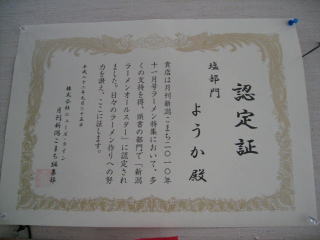 認定証
塩部門
ようか殿
貴店は月刊新潟こまち二〇一〇年
十一月号ラーメン特集において、多
くの支持を得、頭書の部門で「新潟
ラーメンオールスター」に認定され
ました。日々のラーメン作りへの努
力を讃え、ここに証します。
平成二十二年九月二十五日
株式会社ニューズ・ライン
月刊新潟こまち編集部